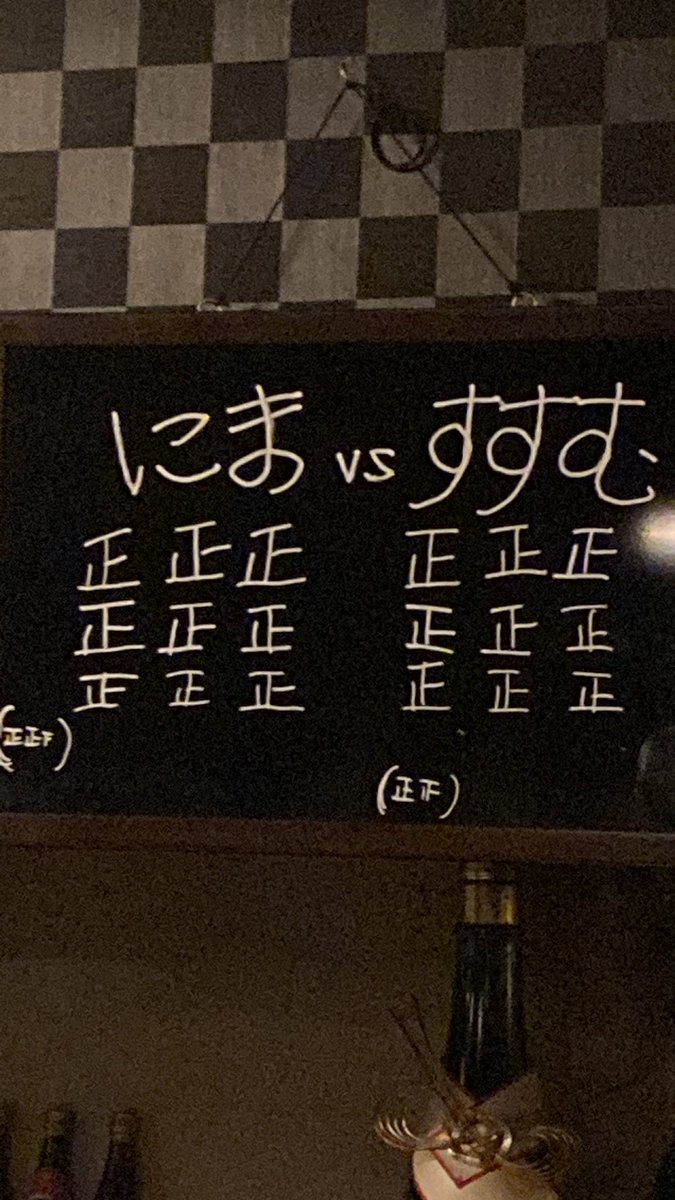 にま vs すすむ
正 正 正 正 正 正
正 正 正 正 正 正
正 正 正 正 正 正
(正正下)
(正下)